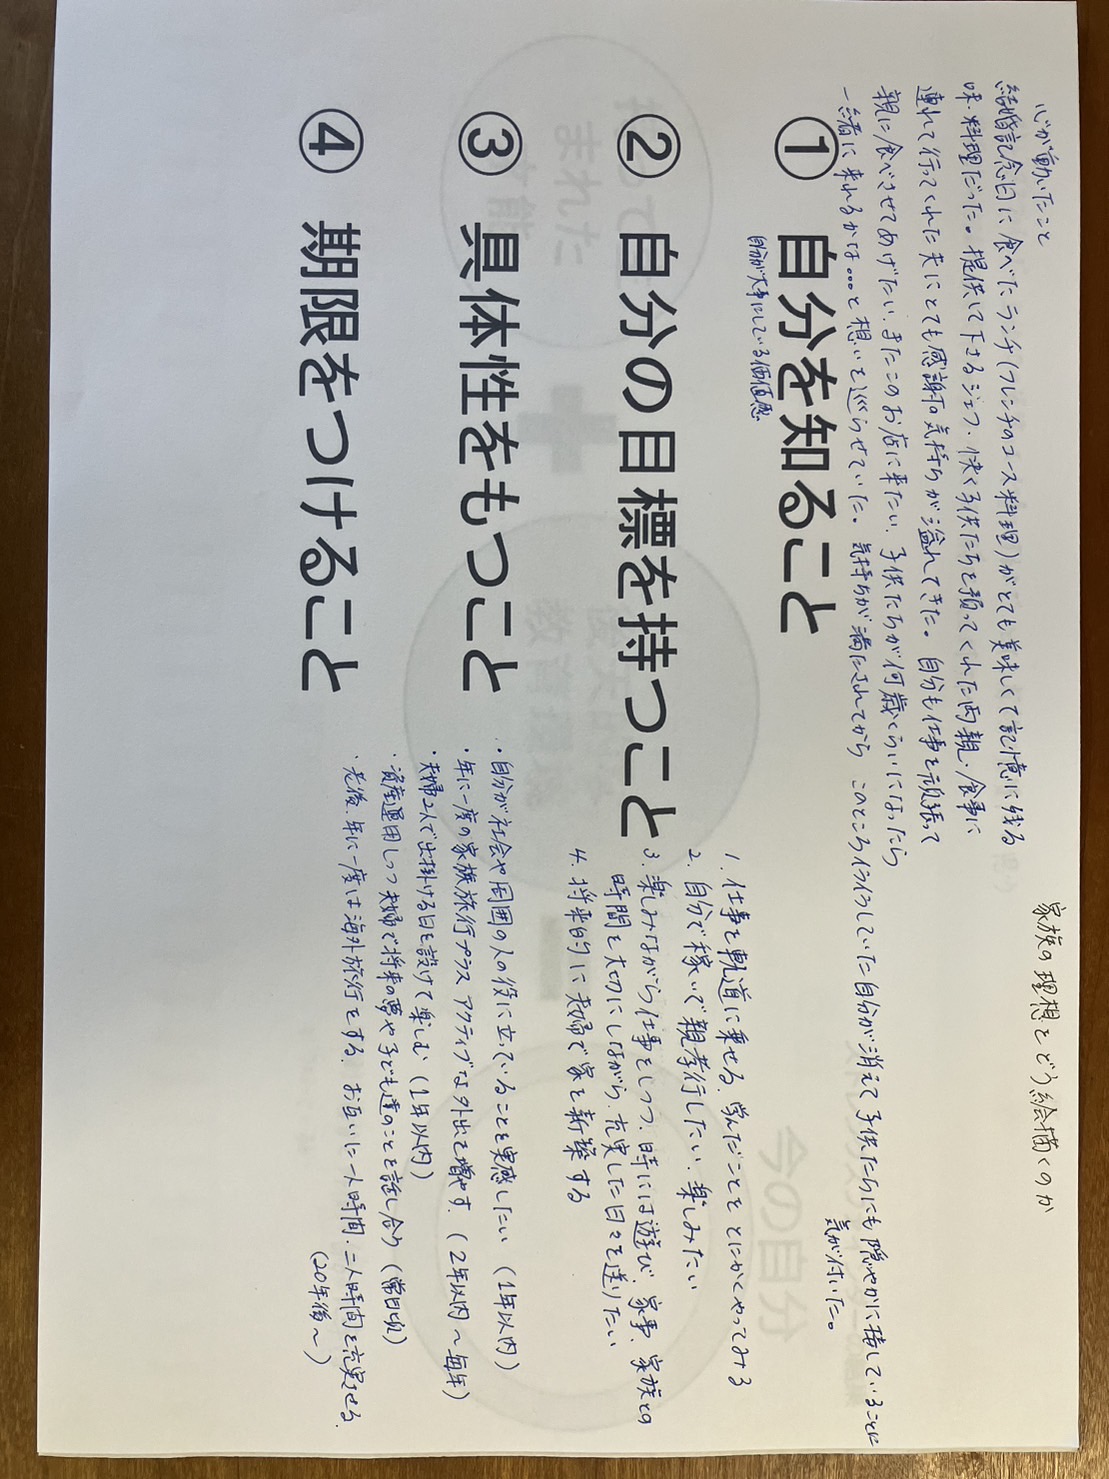 家族の理想をどう絵描くのか
心が動いたこと
結婚記念日に食べたランチ(フレンチのコース料理)がとても美味しくて記憶に残る
味、料理だった。提供して下さるシェフ、快く子供たちを預ってくれた両親、食事に
連れて行ってくれた夫にとても感謝する気持ちが溢れてきた。自分も仕事を頑張って
親に食べさせてあげたい、またこのお店に来たい、子供たちが何歳くらいになったら
一緒に来れるかな…と想いを巡らせていた。気持ちが満たされてから このところイライラしていた自分が消えて子供たちにも穏やかに接していることに
気が付いた。
① 自分を知ること
自分が大事にしている価値感
② 自分の目標を持つこと
1. 仕事を軌道に乗せる、学んだことをとにかくやってみる
2. 自分で稼いで親孝行したい、楽しみたい
3. 楽しみながら仕事をしつつ、時には遊び、家事、家族との
時間を大切にしながら、充実した日々を送りたい
4. 将来的に夫婦で家を新築する
③ 具体性をもつこと
・自分が社会や周囲の人の役に立っていることを実感したい (1年以内)
・年に一度の家族旅行プラス アクティブな外出を増やす。(2年以内〜毎年)
・夫婦2人で出掛ける日を設けて楽しむ (1年以内)
・資産運用しつつ夫婦で将来の夢や子ども達のことを話し合う (常日頃)
・老後、年に一度は海外旅行をする。お互いに一人時間、二人時間を充実させる。
(20年後〜)
④ 期限をつけること
持って
まれた
才能
後天的な
教育環境
今の自分